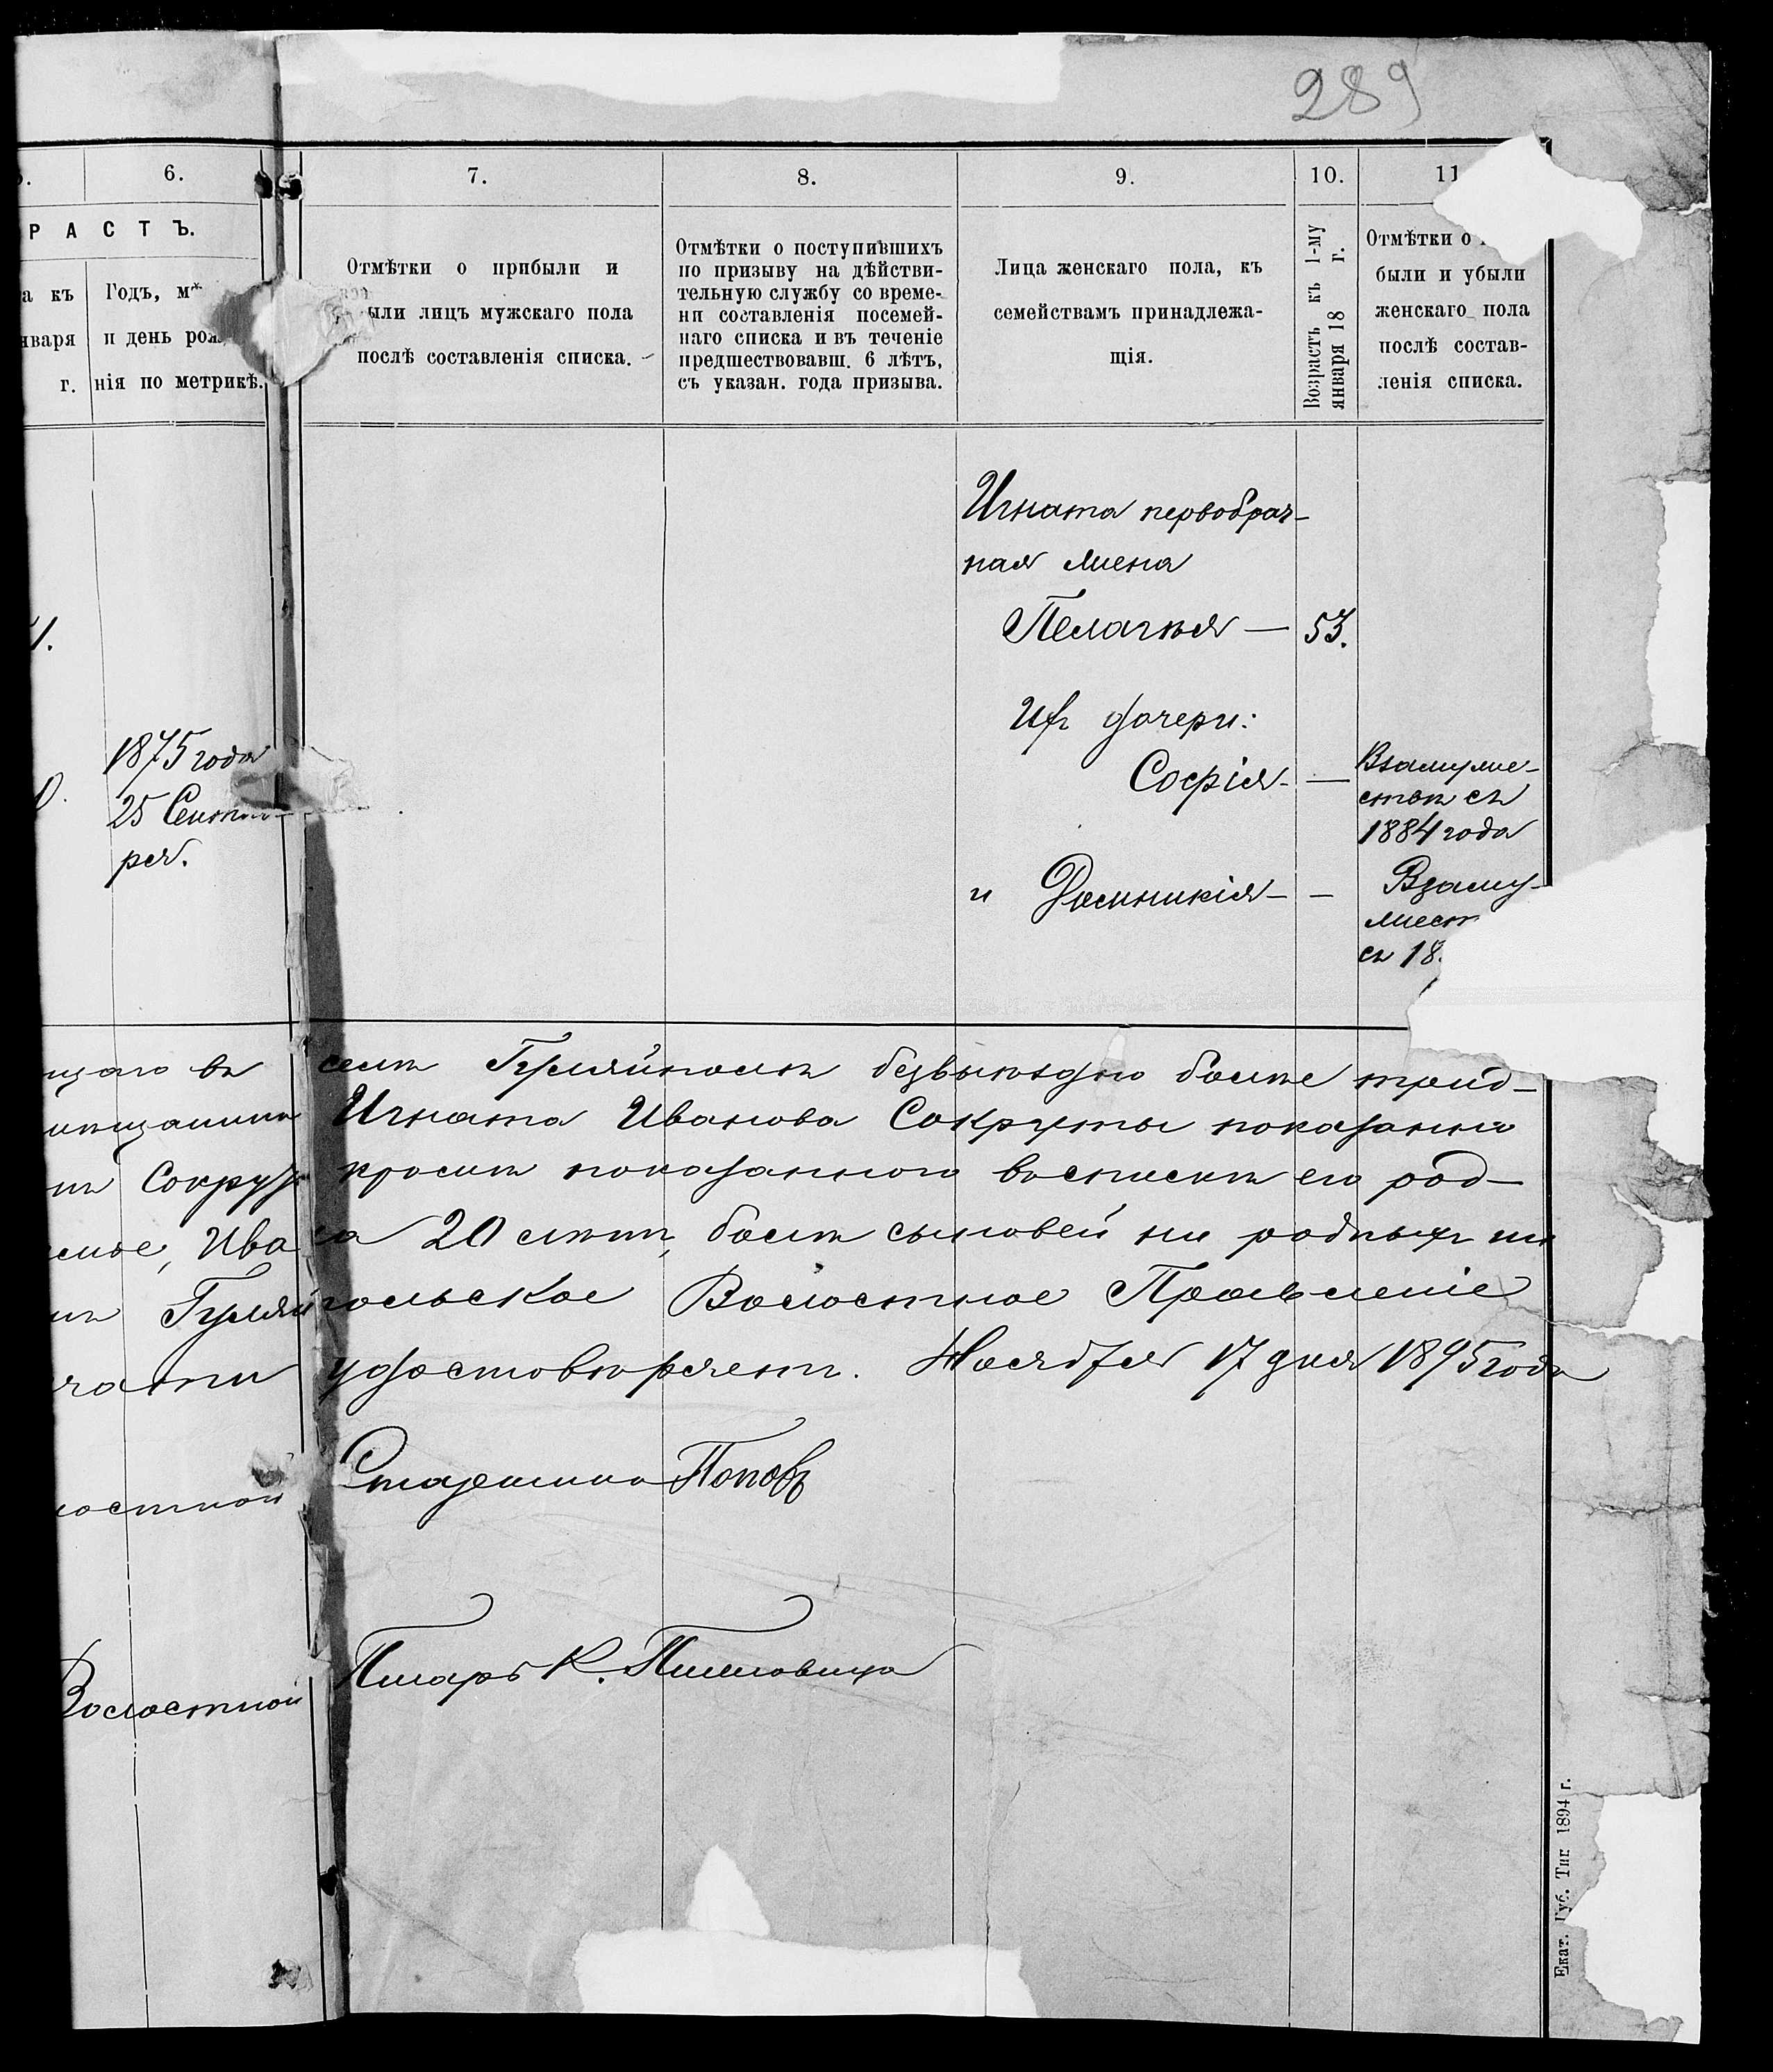 289
6.
7.
8.
9.
10.
11
РАСТЪ.
а къ
нваря
г.
Годъ, мѣ
и день рож
нія по метрикѣ.
Отмѣтки о прибыли и
ыли лицъ мужскаго пола
послѣ составленія списка.
Отмѣтки о поступившихъ
по призыву на дѣйстви-
тельную службу со време-
ни составленія посемей-
наго списка и въ теченіе
предшествовавш. 6 лѣтъ,
съ указан. года призыва.
Лица женскаго пола, къ
семействамъ принадлежа-
щія.
Возрастъ къ 1-му
января 18 г.
Отмѣтки о
были и убыли
женскаго пола
послѣ состав-
ленія списка.
1875 года
25 Сентяб-
ря.
Игната первобрач-
ная жена
Пелагія — 53.
Ихъ дочери:
Софія — —
Взамуже-
ствѣ съ
1884 года
и Домникія — —
Взаму-
жест
съ 18
щаго въ селѣ Гуляйполѣ безвыѣздно болѣе трид-
Игната Иванова Сокруты показанно
Сокру просит показанного въ спискѣ его род-
мое, Ива а 20 лѣтъ, болѣ сыновей ни родныхъ ни
Гуляйпольское Волостное Правленіе
чати удостовѣряетъ. Ноября 17 дня 1895 года
лостной Старшина Поповъ
Волостной Писарь К.
Екат. Губ. Тип. 1894 г.